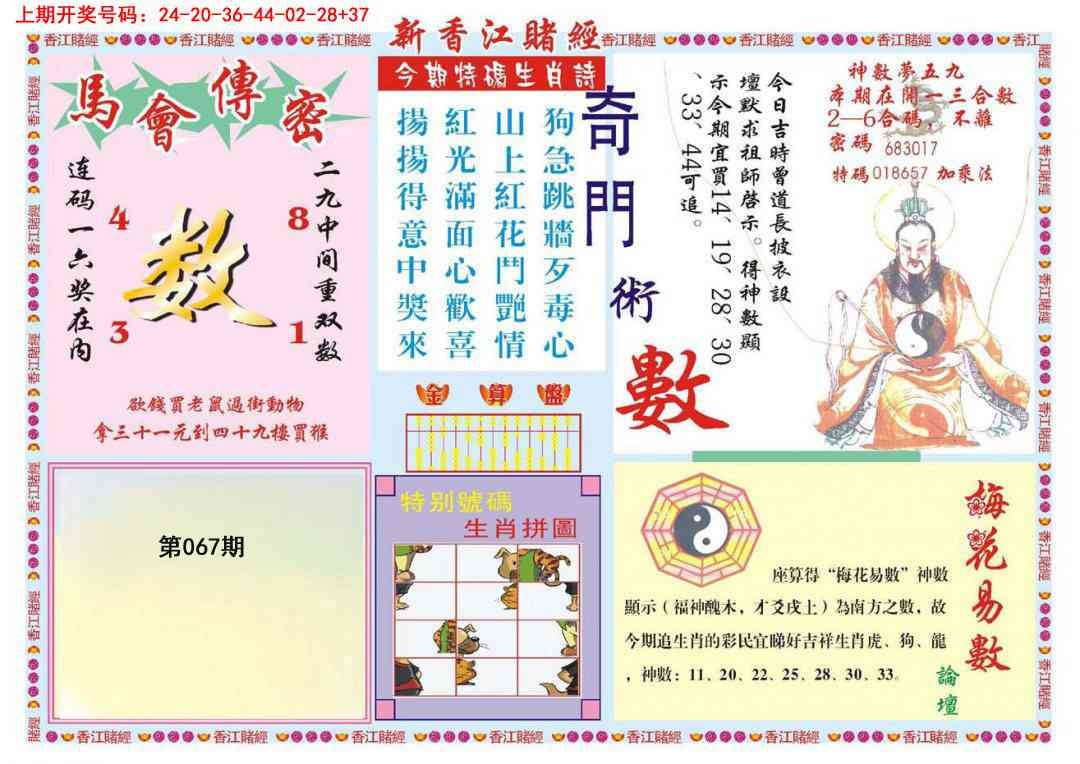 上期开奖号码：24-20-36-44-02-28+37
新香江賭經
香江賭經
馬會傳密
二九中间重双数
连码一六奖在内
4
8
数
3
1
欲錢買老鼠過街動物
拿三十一元到四十九樓買猴
今期特碼生肖詩
狗急跳牆歹毒心
山上紅花鬥艷情
紅光滿面心歡喜
揚揚得意中獎來
奇門術數
今日吉時曾道長披衣設
壇默求祖師啓示。得神數顯
示今期宜買14、19、28、30
、33、44可追。
神數夢五九
本期在開一三合數
2—6合碼，不離
密碼 683017
特碼018657 加乘法
金算盤
第067期
特别號碼
生肖拼圖
梅花易數
座算得“梅花易數”神數
顯示（福神醜木，才爻戌土）為南方之數，故
今期追生肖的彩民宜睇好吉祥生肖虎、狗、龍
，神數：11、20、22、25、28、30、33。
論壇